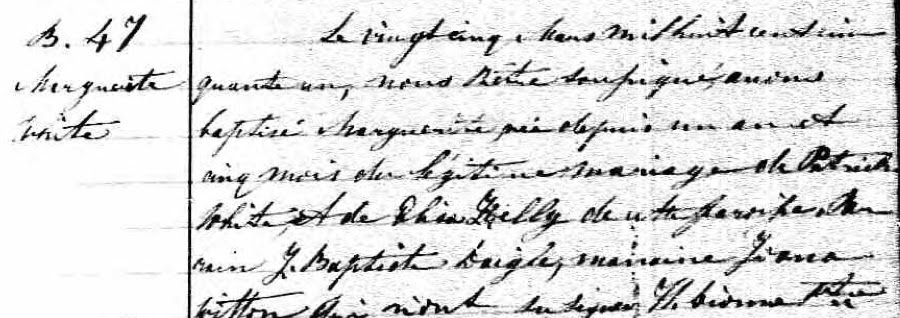 B. 47
Marguerite
White
Le vingt cinq Mars mil huit cent cin
quante un, nous Prêtre soussigné, avons
baptisé Marguerite née depuis un an et
cinq mois du légitime mariage de Patrick
White, et de Kelly de cette paroisse. Par
rain J. Baptiste Daigle, marraine
qui n'ont su signer.